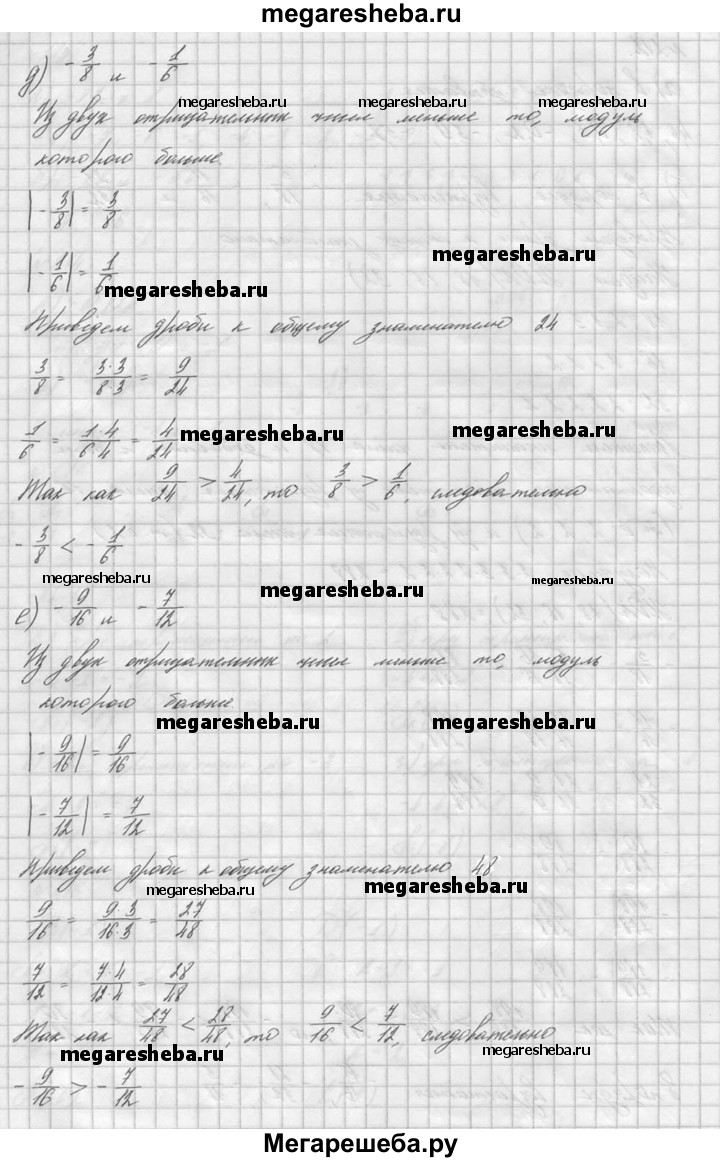 megaresheba.ru
д) -3/8 и -1/6
megaresheba.ru megaresheba.ru megaresheba.ru
Из двух отрицательных чисел меньше то, модуль
которого больше.
|-3/8| = 3/8
megaresheba.ru
|-1/6| = 1/6
megaresheba.ru
Приведем дроби к общему знаменателю 24
3/8 = 3·3/8·3 = 9/24
1/6 = 1·4/6·4 = 4/24
megaresheba.ru megaresheba.ru
Так как 9/24 > 4/24, то 3/8 > 1/6, следовательно
-3/8 < -1/6
megaresheba.ru megaresheba.ru megaresheba.ru
е) -9/16 и -7/12
Из двух отрицательных чисел меньше то, модуль
которого больше.
megaresheba.ru megaresheba.ru
|-9/16| = 9/16
|-7/12| = 7/12
Приведем дроби к общему знаменателю 48
megaresheba.ru megaresheba.ru
9/16 = 9·3/16·3 = 27/48
7/12 = 7·4/12·4 = 28/48
Так как 27/48 < 28/48, то 9/16 < 7/12, следовательно
megaresheba.ru megaresheba.ru
-9/16 > -7/12
Мегарешеба.ру